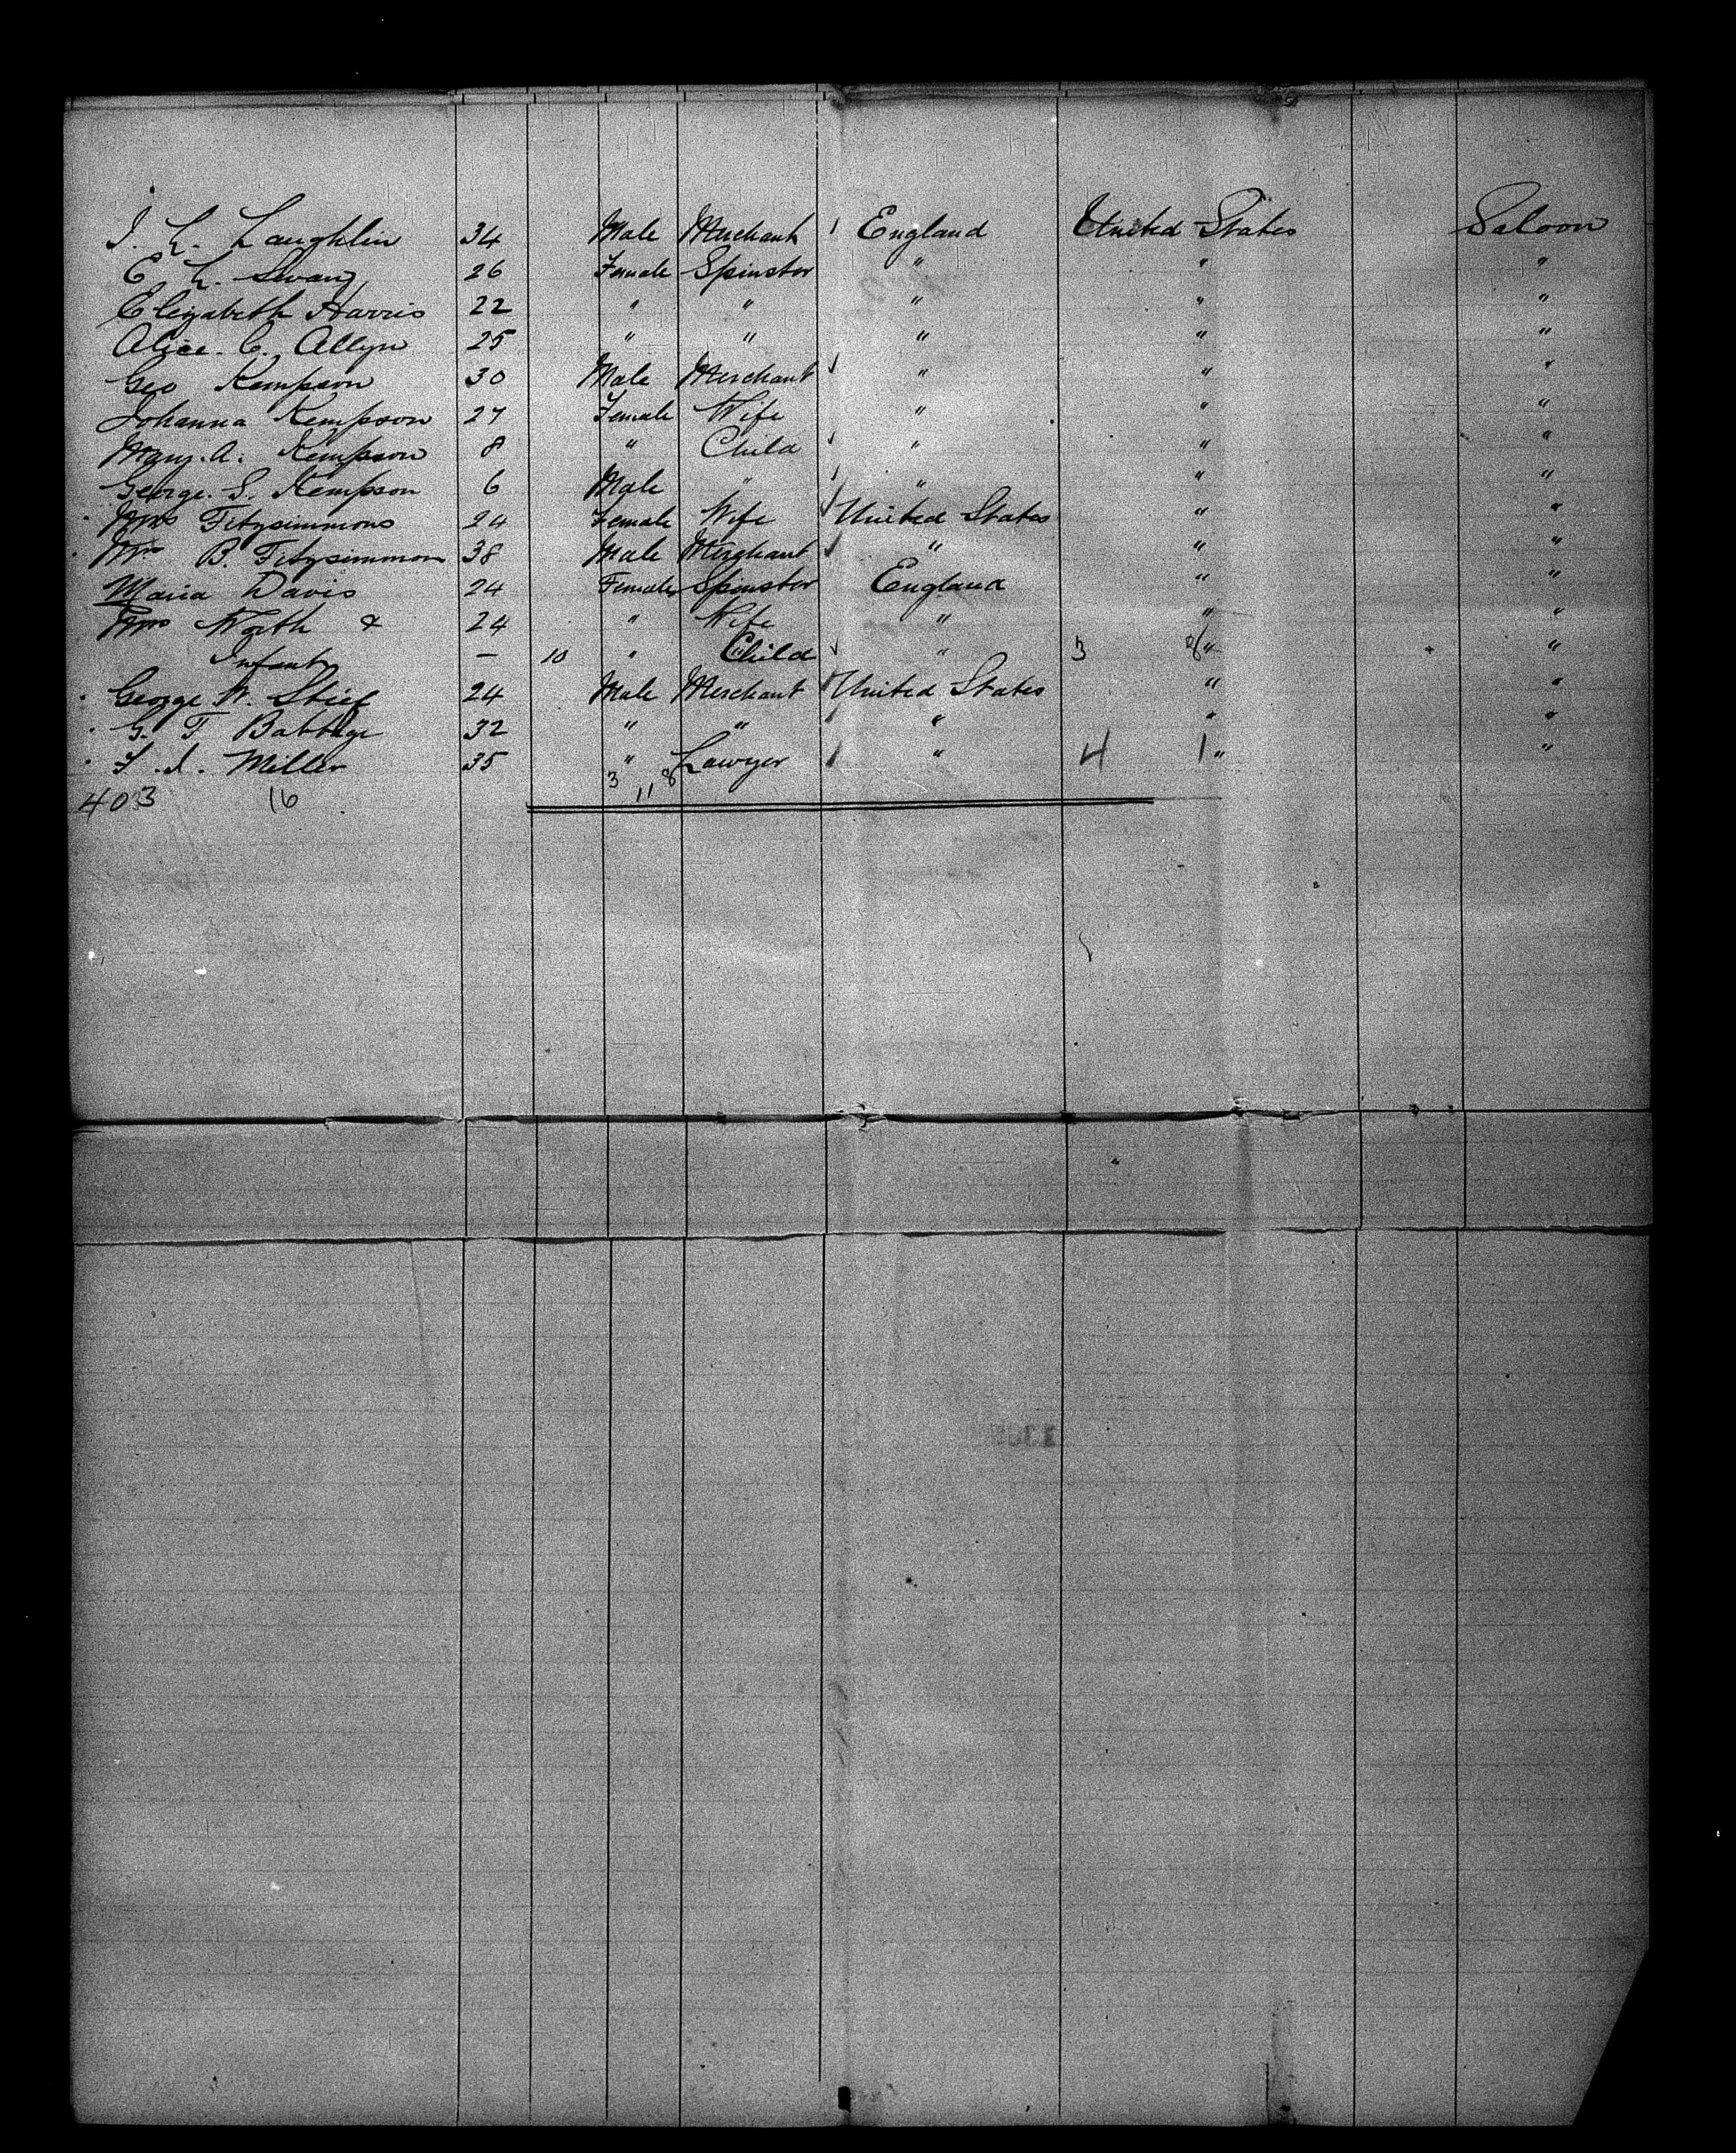 J. L. Laughlin 34 Male Merchant England United States Saloon
E. L. Swan 26 Female Spinster " " "
Elizabeth Harris 22 " " " " "
Alice. C. Allyn 25 " " " " "
Geo Kempson 30 Male Merchant " " "
Johanna Kempson 27 Female Wife " " "
Mary. A. Kempson 8 " Child " " "
George. S. Kempson 6 Male " " " "
Mrs Fitzsimmons 24 Female Wife United States " "
Mr B. Fitzsimmons 38 Male Merchant " " "
Maria Davis 24 Female Spinster England " "
Mrs Worth & 24 " Wife " " "
Infant — 10 " Child " 3 8 " "
George W. Stief 24 Male Merchant United States " "
G. F Babbage 32 " " " " "
F. I. Miller 35 " Lawyer " 4 1 " "
403 16 3 11 8